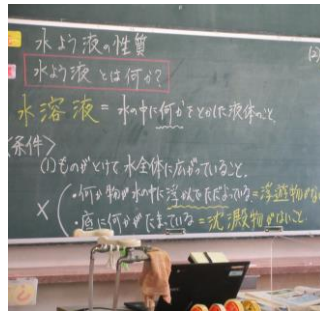 水よう液の性質
水よう液とは何か?
水溶液=水の中に何かをとかした液体のこと。
〈条件〉
(1)ものがとけて水全体に広がっていること。
×
・何か物が水の中に浮かんでただよっている=浮遊物がない
・底に何かがたまっている=沈殿物がないこと
(2)